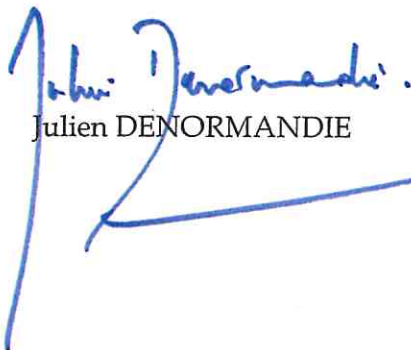 Julien Denormandie.
Julien DENORMANDIE